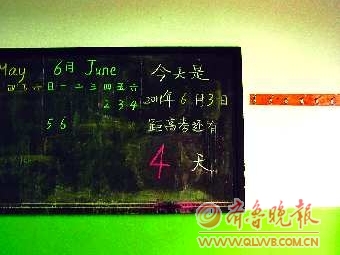 May 6月 June
日一二三四五六
2 3 4
5 6
今天是
2011年6月3日
距高考还有
4 天
齐鲁晚报
WWW.QLWB.COM.CN